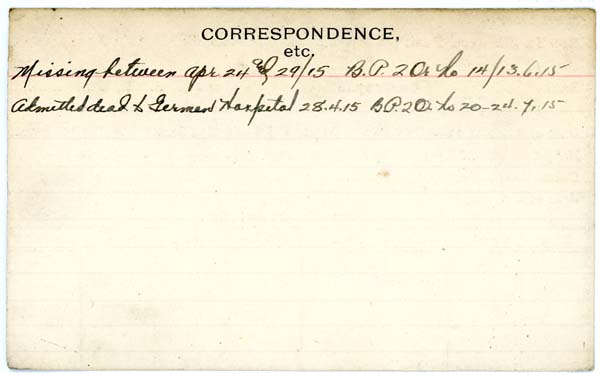 CORRESPONDENCE,
etc.
Missing between Apr 24 & 29/15 B.P. 2 Or No 14/13.6.15
Admitted dead to German Hospital 28.4.15 B.P. 2 Or. No 20-24.7.15